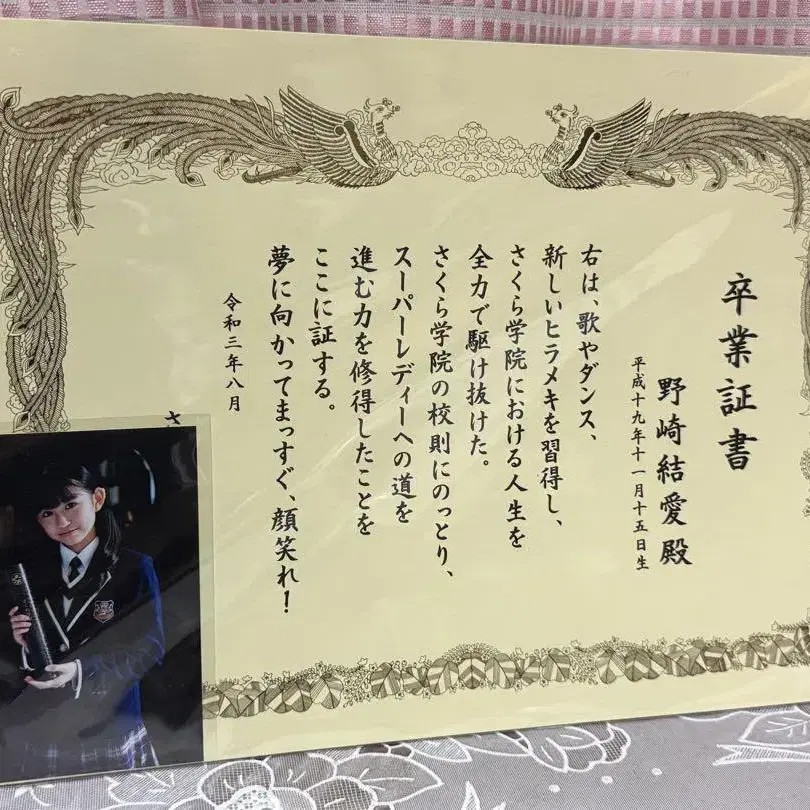 卒業証書
野崎結愛 殿
平成十九年十一月十五日生
右は、歌やダンス、
新しいヒラメキを習得し、
さくら学院における人生を
全力で駆け抜けた。
さくら学院の校則にのっとり、
スーパーレディーへの道を
進む力を修得したことを
ここに証する。
夢に向かってまっすぐ、顔笑れ！
令和三年八月
さ